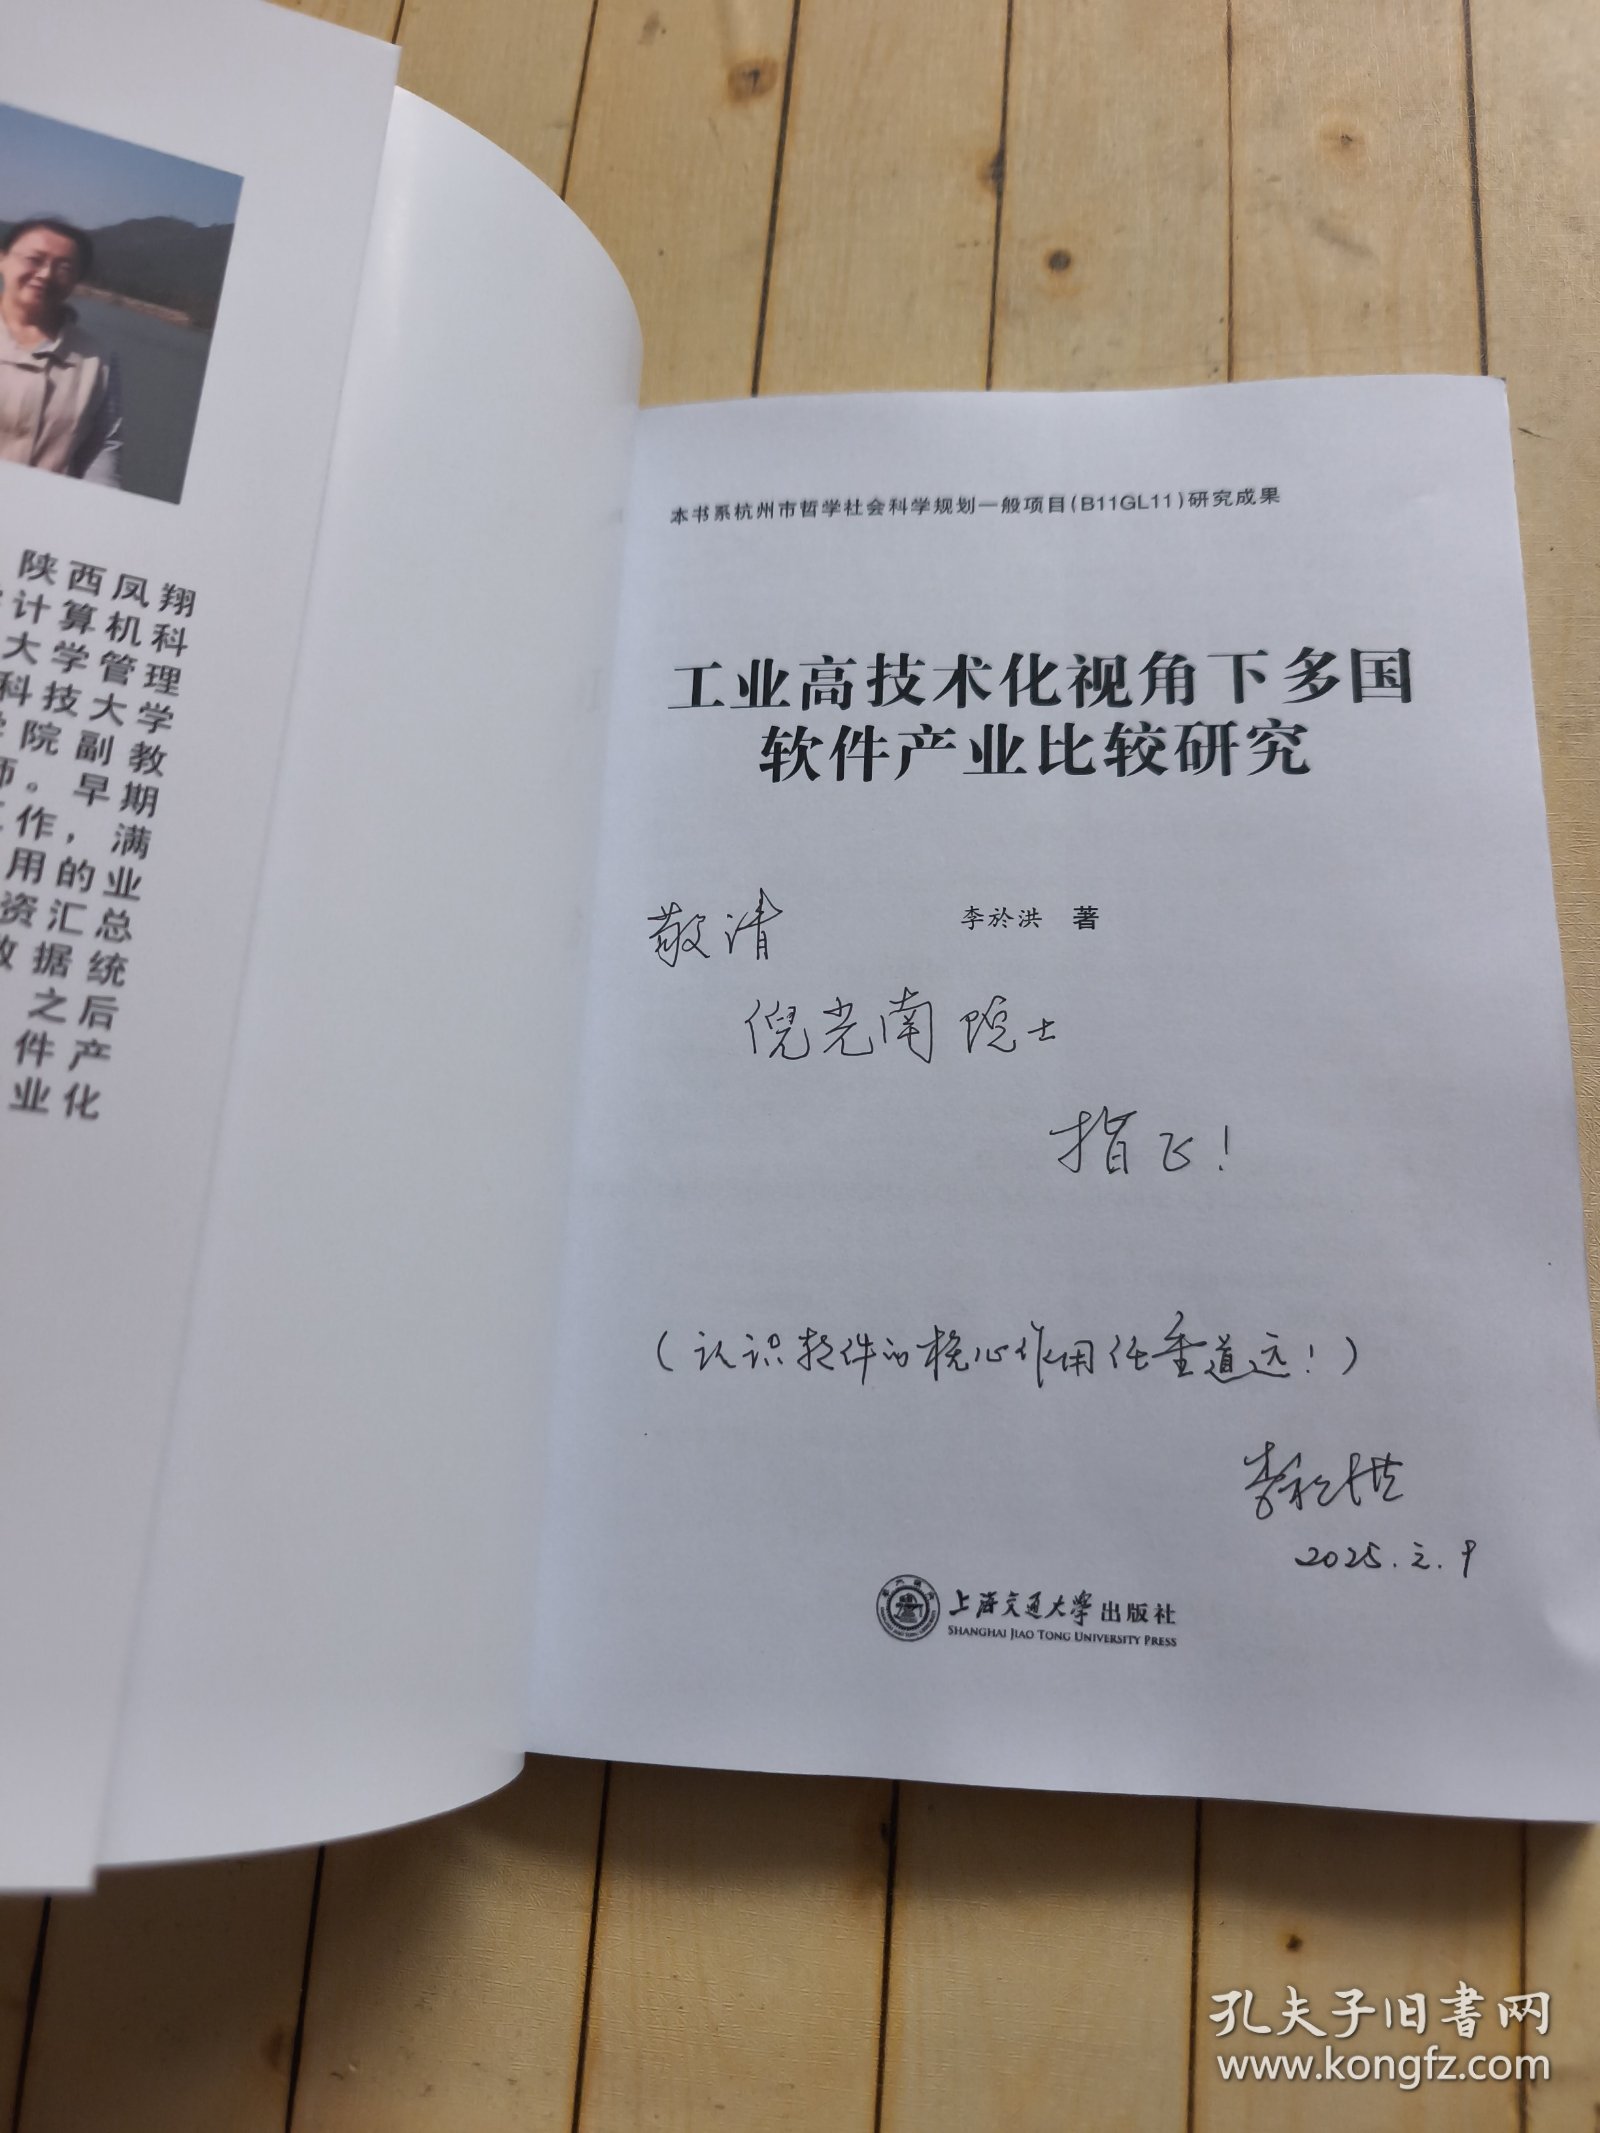 陕西凤翔
计算机科
大学管理
科技大学
学院副教
师。早期
工作，满
用的业
资汇总
数据统
之后
件产
业化
本书系杭州市哲学社会科学规划一般项目(B11GL11)研究成果
工业高技术化视角下多国
软件产业比较研究
李於洪 著
敬请
倪光南院士
指正!
(认识软件的核心作用任重道远!)
李於洪
2025.2.9
上海交通大学出版社
SHANGHAI JIAO TONG UNIVERSITY PRESS
孔夫子旧书网
www.kongfz.com